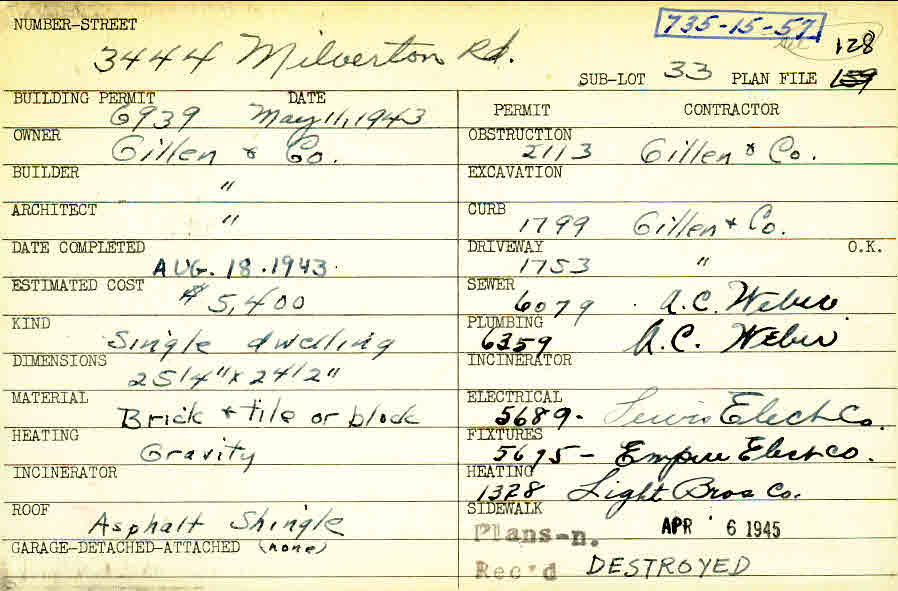 NUMBER-STREET
735-15-57
3444 Milverton Rd.
128
SUB-LOT 33 PLAN FILE 159
BUILDING PERMIT DATE
6939 May 11, 1943
OWNER
Gillen & Co.
BUILDER
"
ARCHITECT
"
DATE COMPLETED
AUG. 18. 1943.
ESTIMATED COST
$ 5,400
KIND
Single dwelling
DIMENSIONS
25'4" x 24'2"
MATERIAL
Brick & tile or block
HEATING
Gravity
INCINERATOR
ROOF
Asphalt Shingle
GARAGE-DETACHED-ATTACHED (none)
PERMIT CONTRACTOR
OBSTRUCTION
2113 Gillen & Co.
EXCAVATION
CURB
1799 Gillen & Co.
DRIVEWAY O.K.
1753 "
SEWER
6079 A.C. Weber
PLUMBING
6359 A.C. Weber
INCINERATOR
ELECTRICAL
5689- Lewis Elect Co.
FIXTURES
5695- Empire Elect Co.
HEATING
1328 Light Bros Co.
SIDEWALK
Plans-n. APR 6 1945
Rec'd DESTROYED